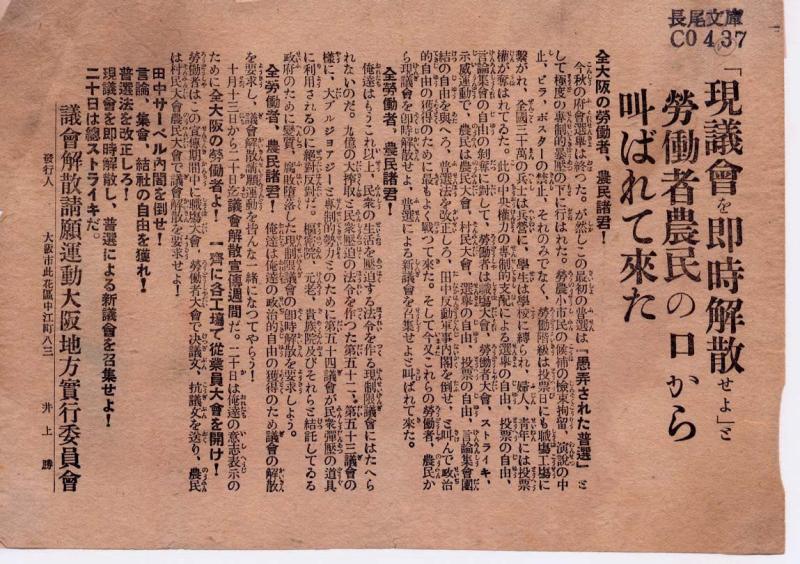 長尾文庫
C0 437
「現議會を即時解散せよ」と
勞働者農民の口から
叫ばれて來た
全大阪の勞働者、農民諸君!
今秋の府會選擧は終つた。が然しこの最初の普選は「愚弄された普選」と
して極度の專制的暴壓の下に行はれた。勞農小市民の候補の檢束拘留、演說の中
止、ビラ、ポスターの禁止、それのみでなく、勞働階級は投票日にも職場工場に
繫がれ、全國三十萬の兵士は兵營に、學生は學校に縛られ、婦人、靑年には投票
權が奪はれてゐた。此の中央權力の專制的支配による選擧の自由、投票の自由、
言論集會の自由の剝奪に對して、勞働者は職場大會、勞働者大會、ストライキ、
示威運動で、農民は農民大會、村民大會、選擧の自由、投票の自由、言論集會團
結の自由を與へろ、普選法を改正しろ、田中反動軍事內閣を倒せ、と叫んで政治
的自由の獲得のために最もよく戰つて來た。そして今又これらの勞働者、農民か
ら現議會を即時解散せよ、普選による新議會を召集せよと叫ばれて來た。
全勞働者、農民諸君!
俺達はもうこれ以上、民衆の生活を壓迫する法令を作る現制限議會にはたへら
れないのだ。九億の大搾取と民衆壓迫の法令を作つた第五十二、第五十三議會の
樣に、大ブルジョアジーと專制的勢力とのために第五十四議會が民衆彈壓の道具
に利用されるのに絕對反對だ。樞密院、元老、貴族院及びそれらと結託してゐる
政府のために變質、腐敗墮落した現制限議會の即時解散を要求しよう。
全勞働者、農民諸君! 俺達は俺達の政治的自由の獲得のため議會の解散
を要求し、議會解散請願運動を皆んな一緖になつてやらう!
十月十三日から二十日迄議會解散宣傳週間だ。二十日は俺達の意志表示の
ために全大阪の勞働者よ! 一齊に各工場で從業員大會を開け!
勞働者はこの宣傳期間中に職場大會、勞働者大會で決議文、抗議文を送り、農民
は村民大會農民大會で議會解散を要求せよ!
田中サーベル內閣を倒せ!
言論、集會、結社の自由を獲れ!
普選法を改正しろ!
現議會を即時解散し、普選による新議會を召集せよ!
二十日は總ストライキだ。
議會解散請願運動大阪地方實行委員會
發行人 大阪市此花區中江町八三 井上勝